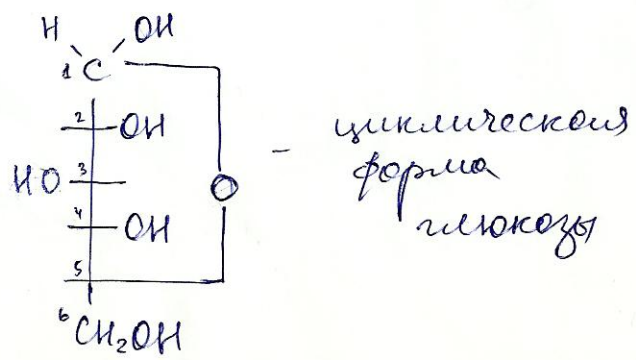 H OH
1 C
2 OH
HO 3 O
4 OH
5
6 CH₂OH
- циклическая
форма
глюкозы